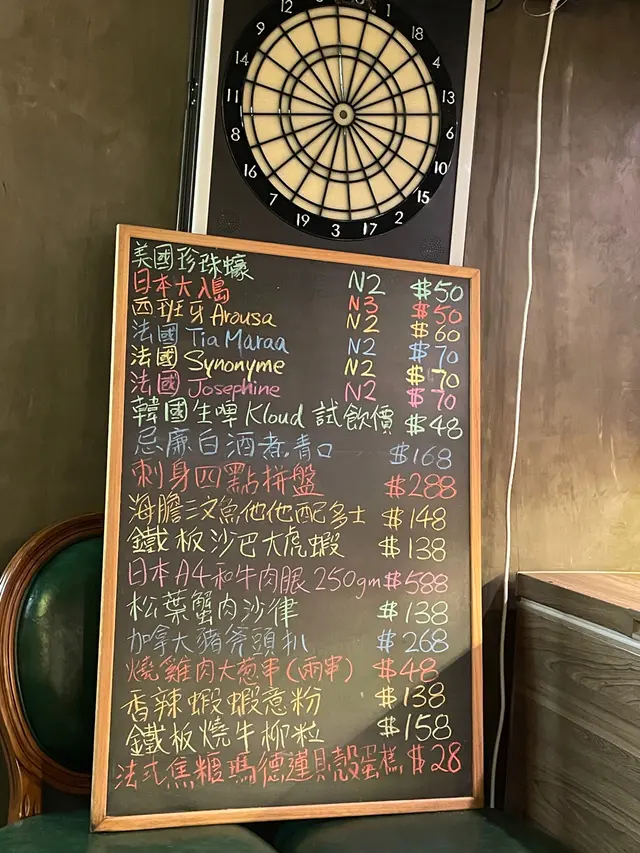 12
1
9
18
14
4
11
13
8
6
16
15
7
2
19
17
3
美國珍珠蠔 N2 $50
日本大入島 N3 $50
西班牙 Arousa N2 $60
法國 Tia Maraa N2 $70
法國 Synonyme N2 $70
法國 Josephine N2 $70
韓國生啤 Kloud 試飲價 $48
忌廉白酒煮青口 $168
刺身四點拼盤 $288
海膽三文魚他他配多士 $148
鐵板沙巴大虎蝦 $138
日本A4和牛肉眼 250gm $588
松葉蟹肉沙律 $138
加拿大豬斧頭扒 $268
燒雞肉大葱串(兩串) $48
香辣蝦蝦意粉 $138
鐵板燒牛柳粒 $158
法式焦糖瑪德蓮貝殼蛋糕 $28